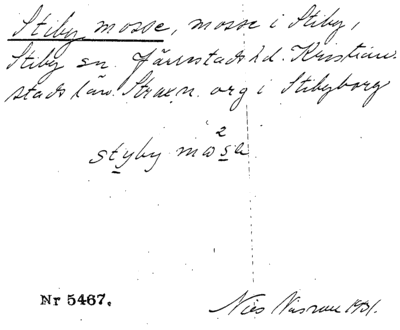 Stiby mosse, mosse i Stiby,
Stiby sn. Järrestads hd. Kristian-
stads län. Strax n. org i Stibyborg
styby mo²se
Nr 5467.
Nils 1931.